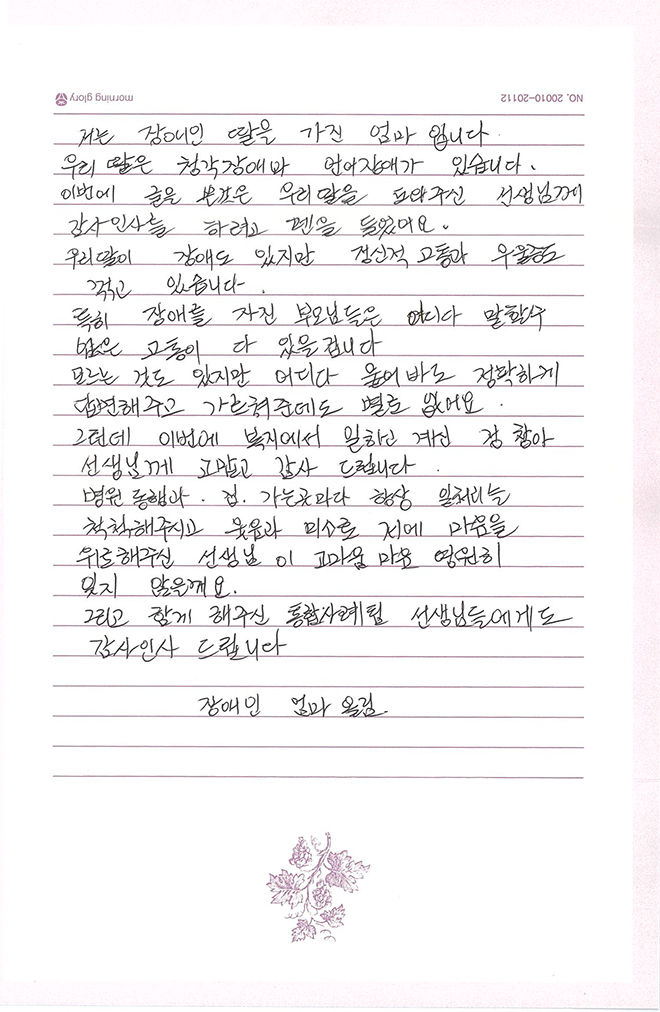 NO. 20010-20112
morning glory
저는 장애인 딸을 가진 엄마 입니다.
우리 딸은 청각장애와 언어장애가 있습니다.
이번에 글을 쓴것은 우리딸을 도와주신 선생님께
감사인사를 하려고 펜을 들었어요.
우리딸이 장애도 있지만 정신적 고통과 우울증도
겪고 있습니다.
특히 장애를 가진 부모님들은 어디다 말할수
없은 고통이 다 있을겁니다
모르는 것도 있지만 어디다 물어바도 정확하게
답변해주고 가르쳐준데도 별로 없어요.
그런데 이번에 복지에서 일하고 계신 김 참아
선생님께 고맙고 감사 드립니다.
병원동행과. 집. 가는곳마다 항상 일처리를
척척해주시고 웃음과 미소로 저에 마음을
위로해주신 선생님 이 고마움 마음 영원히
잊지 않을께요.
그리고 함게 해주신 통합사례팀 선생님들에게도
감사인사 드립니다
장애인 엄마 올림.